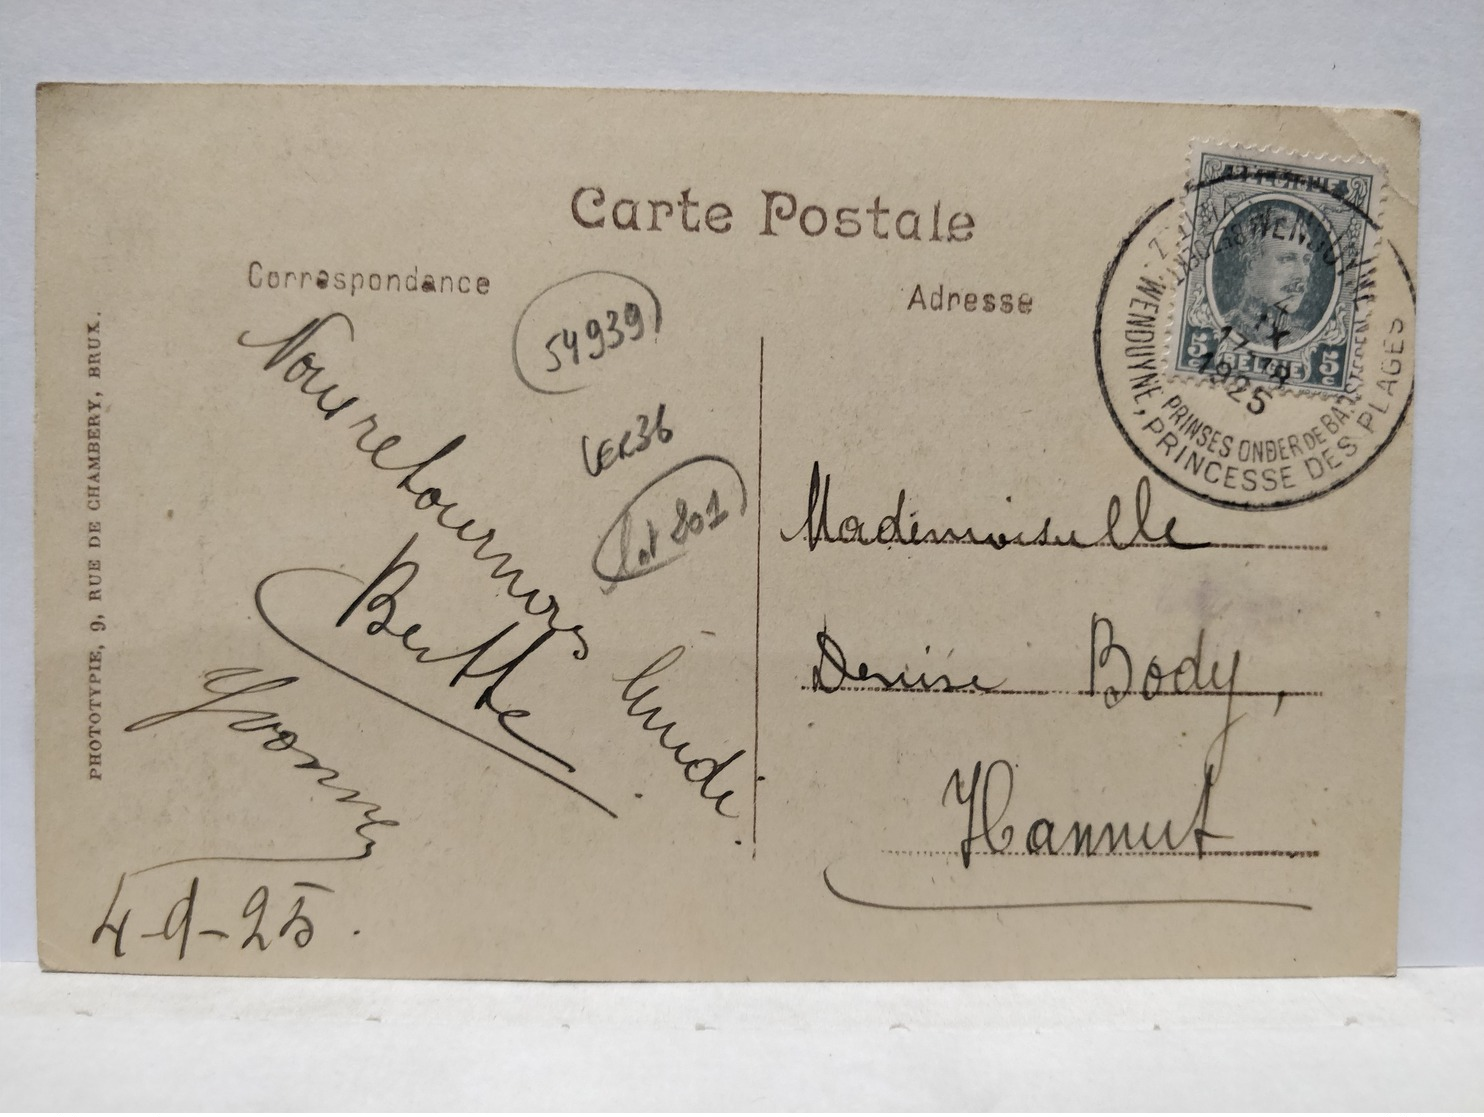 Carte Postale
Correspondance
Adresse
PHOTOTYPIE, 9, RUE DE CHAMBERY, BRUX.
54939
VER36
lot 201
Nous retournons lundi.
Berthe
Yvonne
4-9-25.
Mademoiselle
Denise Body,
Hannut
BELGIE
5c 5c
WENDUYNE
IX
17-18
1925
PRINSES ONDER DE BADSTEDEN
WENDUYNE, PRINCESSE DES PLAGES